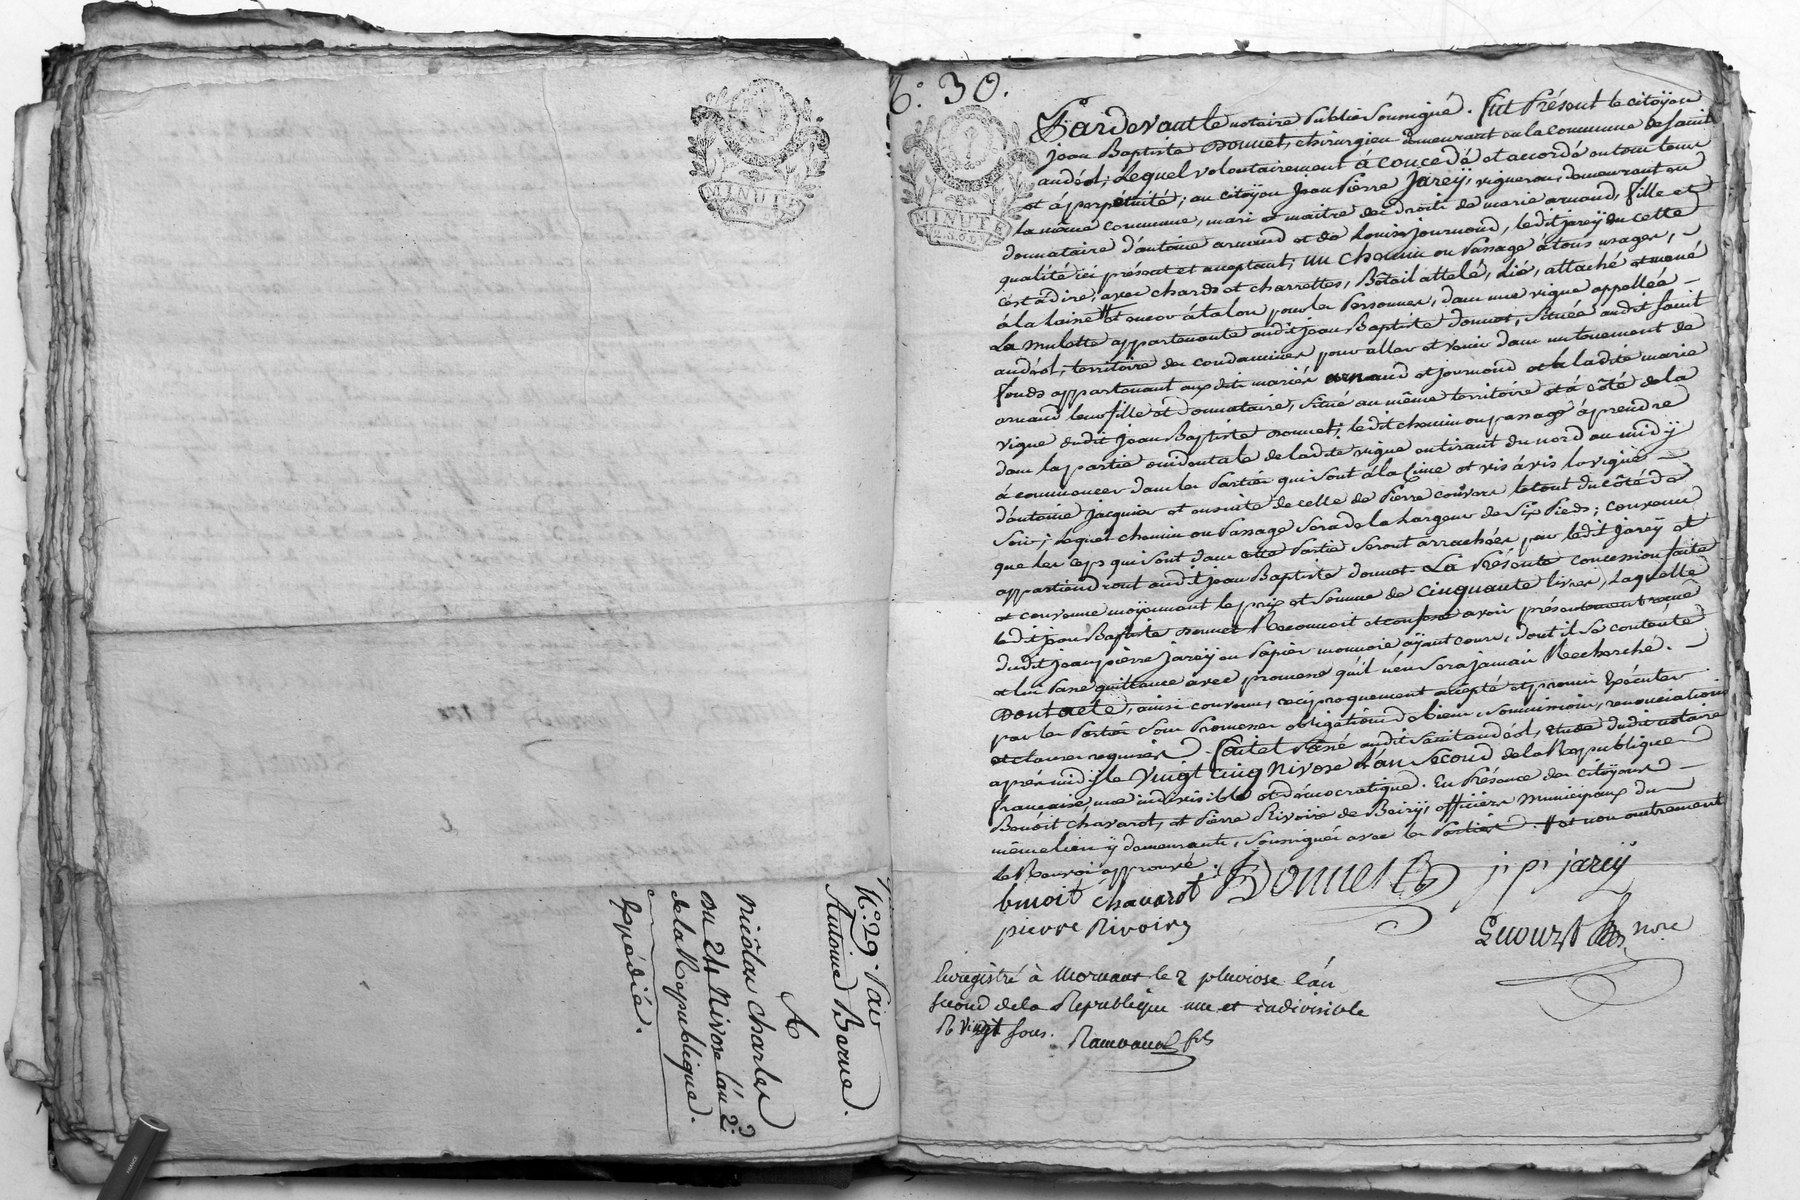 MINUTE
N.° 29. Par
Antoine Berne.
A
Nicolas Charles
Du 24 Nivose l'an 2.e
de la Republique.
Expédié.
N.° 30.
MINUTE
Pardevant le notaire Public Soussigné. fut Présent le citoÿen
jean Baptiste Donnet, chirurgien demeurant en la commune de Saint
andéol; Lequel volontairement à concedé et accordé en tout tems
et à perpétuité; au citoÿen Jean Pierre Jareÿ, vigneron, demeurant en
la même commune, mari et maitre des droits de marie arnaud, fille et
donnataire d'antoine arnaud et de Louise journoud, ledit jareÿ en cette
qualité ici présent et acceptant; un chemin ou Passage à tous usages,
c'est à dire, avec chards et charrettes, Bétail attelé, Lié, attaché et mené
à la laisse # et encor à talon pour les Personnes, dans une vigne appellée
La Mulette appartenante audit jean Baptiste Donnet, située audit Saint
andéol, territoire des condamines pour aller et venir dans un tenement de
fonds appartenant auxdits mariés arnaud et journoud et à ladite marie
arnaud leur fille et donnataire, situé au même territoire et à côté de la
vigne dudit jean Baptiste Donnet; ledit chemin ou passage à prendre
dans la partie occidentale de ladite vigne en tirant du nord au midÿ
à commencer dans les Parties qui sont à la Cime et vis à vis la vigne
d'antoine jacquier et ensuite de celle de Pierre le tout du côté de
Soir; Lequel chemin ou Passage Sera de la Largeur de Six Pieds; convenu
que les ceps qui sont dans cette Partie Seront arrachés par ledit Jareÿ et
appartiendront audit jean Baptiste donnet. La Présente concession faite
et convenue moÿennant le prix et Somme de Cinquante livres, Laquelle
ledit jean Baptiste Donnet Reconnoit et confesse avoir présentement reçue
dudit jean pierre Jareÿ en Papier monnoie aÿant cours, dont il Se contente
et lui Passe quittance avec promesse qu'il n'en Sera jamais Recherché.
Dont acte, ainsi convenu, reciproquement accepté et promis Exécuter
par les Parties Sous Promesses obligations de biens, Soumissions, renonciations
et clauses requises. fait et Passé audit Saint andéol, Etude dudit notaire
après midÿ le Vingt Cinq Nivose l'an Second de la République
française, une indivisible et démocratique. En Présence des Citoÿens
Benoit Chavarot, et Pierre Rivoire de Beirÿ, officiers Municipaux du
même lieu ÿ demeurants, Soussignés avec les Parties. # et non autrement
le Renvoi approuvé.
benoit Chavarot Donnet j. p. jareÿ
pierre Rivoire nore
Enregistré à Mornant le 2 pluviose l'an
second de la République une et indivisible
R Vingt Sous. fils